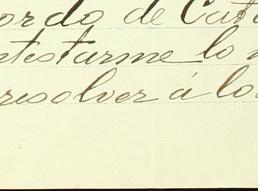 ordo de Cast
ntestarme lo m
resolver á los